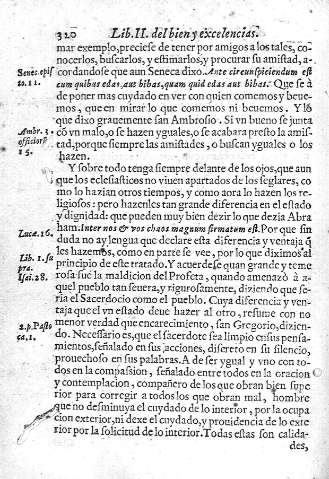 320 Lib. II. del bien y excelencias.
mar exemplo, preciese de tener por amigos a los tales, co-
nocerlos, buscarlos, y estimarlos, y procurar su amistad, a-
Senec. epis
cordandose que aun Seneca dixo. Ante circunspiciendum est
20. 11.
cum quibus edas, aut bibas, quam quid edas aut bibas. Que se à
de poner mas cuydado en ver con quien comemos y beue-
mos, que en mirar lo que comemos ni beuemos. Y lo
que dixo grauemente san Ambrosio. Si vn bueno se junta
Ambr. 3.
cō vn malo, o se hazen yguales, o se acabara presto la amis-
officior
tad, porque siempre las amistades, o buscan yguales o los
15.
hazen.
Y sobre todo tenga siempre delante de los ojos, que aun
que los eclesiasticos no viuen apartados de los seglares, co-
mo lo hazian otros tiempos, y como aora lo hazen los re-
ligiosos: pero hazenles tan grande diferencia en el estado
y dignidad: que pueden muy bien dezir lo que dezia Abra
Lucæ. 16.
ham. Inter nos & vos chaos magnum firmatum est. Por que sin
duda no ay lengua que declare esta diferencia y ventaja q̄
Lib. 1. su
les hazemos, como en parte se vee, por lo que diximos al
pra.
principio de este tratado. Y acuerdese quan grande y teme
Isai. 28.
rosa fue la maldicion del Profeta, quando amenazò à a-
quel pueblo tan seuera, y rigurosamente, diziendo que se-
ria el Sacerdocio como el pueblo. Cuya diferencia y ven-
taja que el vn estado deue hazer al otro, resume con no
2. p. Pasto
menor verdad que encarecimiento, san Gregorio, dizien-
ca. 1.
do. Necessario es, que el sacerdote sea limpio en sus pensa-
mientos, señalado en sus acciones, discreto en su silencio,
prouechoso en sus palabras. A de ser ygual y vno con to-
dos en la compassion, señalado entre todos en la oracion
y contemplacion, compañero de los que obran bien supe
rior para corregir a todos los que obran mal, hombre
que no desminuya el cuydado de lo interior, por la ocupa
cion exterior, ni dexe el cuydado, y prouidencia de lo exte
rior por la solicitud de lo interior. Todas estas son calida-
des,